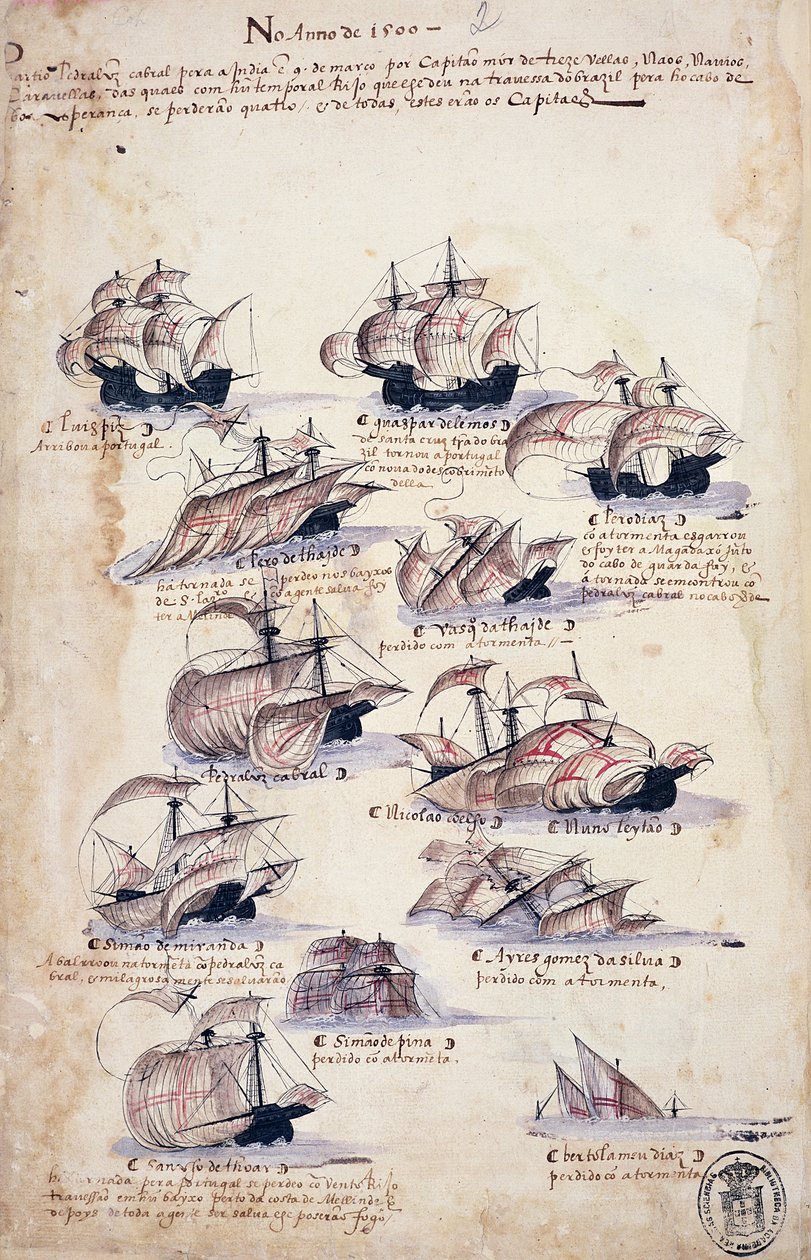 No Anno de 1500 – 2
Partio Pedralvz cabral pera a India e 9. de março por Capitão mór de treze vellas, Naos, Navios,
Caravellas, das quaes com hũ temporal Rijo que lhe deu na travessa do brazil pera ho cabo de
boa sperança, se perderão quatro /. e de todas, estes erão os Capitaẽs
Luis piz
Arribou a portugal.
guaspar de lemos
da santa cruz trã do bra
zil tornou a portugal
cõ nova do descobrimẽto
della
Pero diaz
cõ a tormenta esgarrou
e foy ter a Magadaxó jũto
do cabo de guarda fuy, e
á tornada se emcontrou cõ
pedralvz cabral no cabo vde
Pero de thajde
há tornada se perdeo nos bayxos
de S. Lazro e cõ a gente salva foy
ter a Melinde
Vasqo dathajde
perdido com a tormenta //—
Pedralvz cabral
Nicolao coelho
Nuno leytão
Simão de miranda
Abalrroou na tormẽta cõ pedralvz ca
bral, e milagrosamente se salvarão
Ayres gomez da silva
perdido com a tormenta,
Simão de pina
perdido cõ a tormẽta,
Sancho de thoar
há tornada pera portugal se perdeo cõ vento Rijo
travessão em hũ bayxo perto da costa de Mellinde e
depoys de toda a gente ser salva lhe poserão fogo
bertolameu diaz
perdido cõ a tormenta
BIBLIOTHECA DA ACADEMIA REAL DAS SCIENCIAS